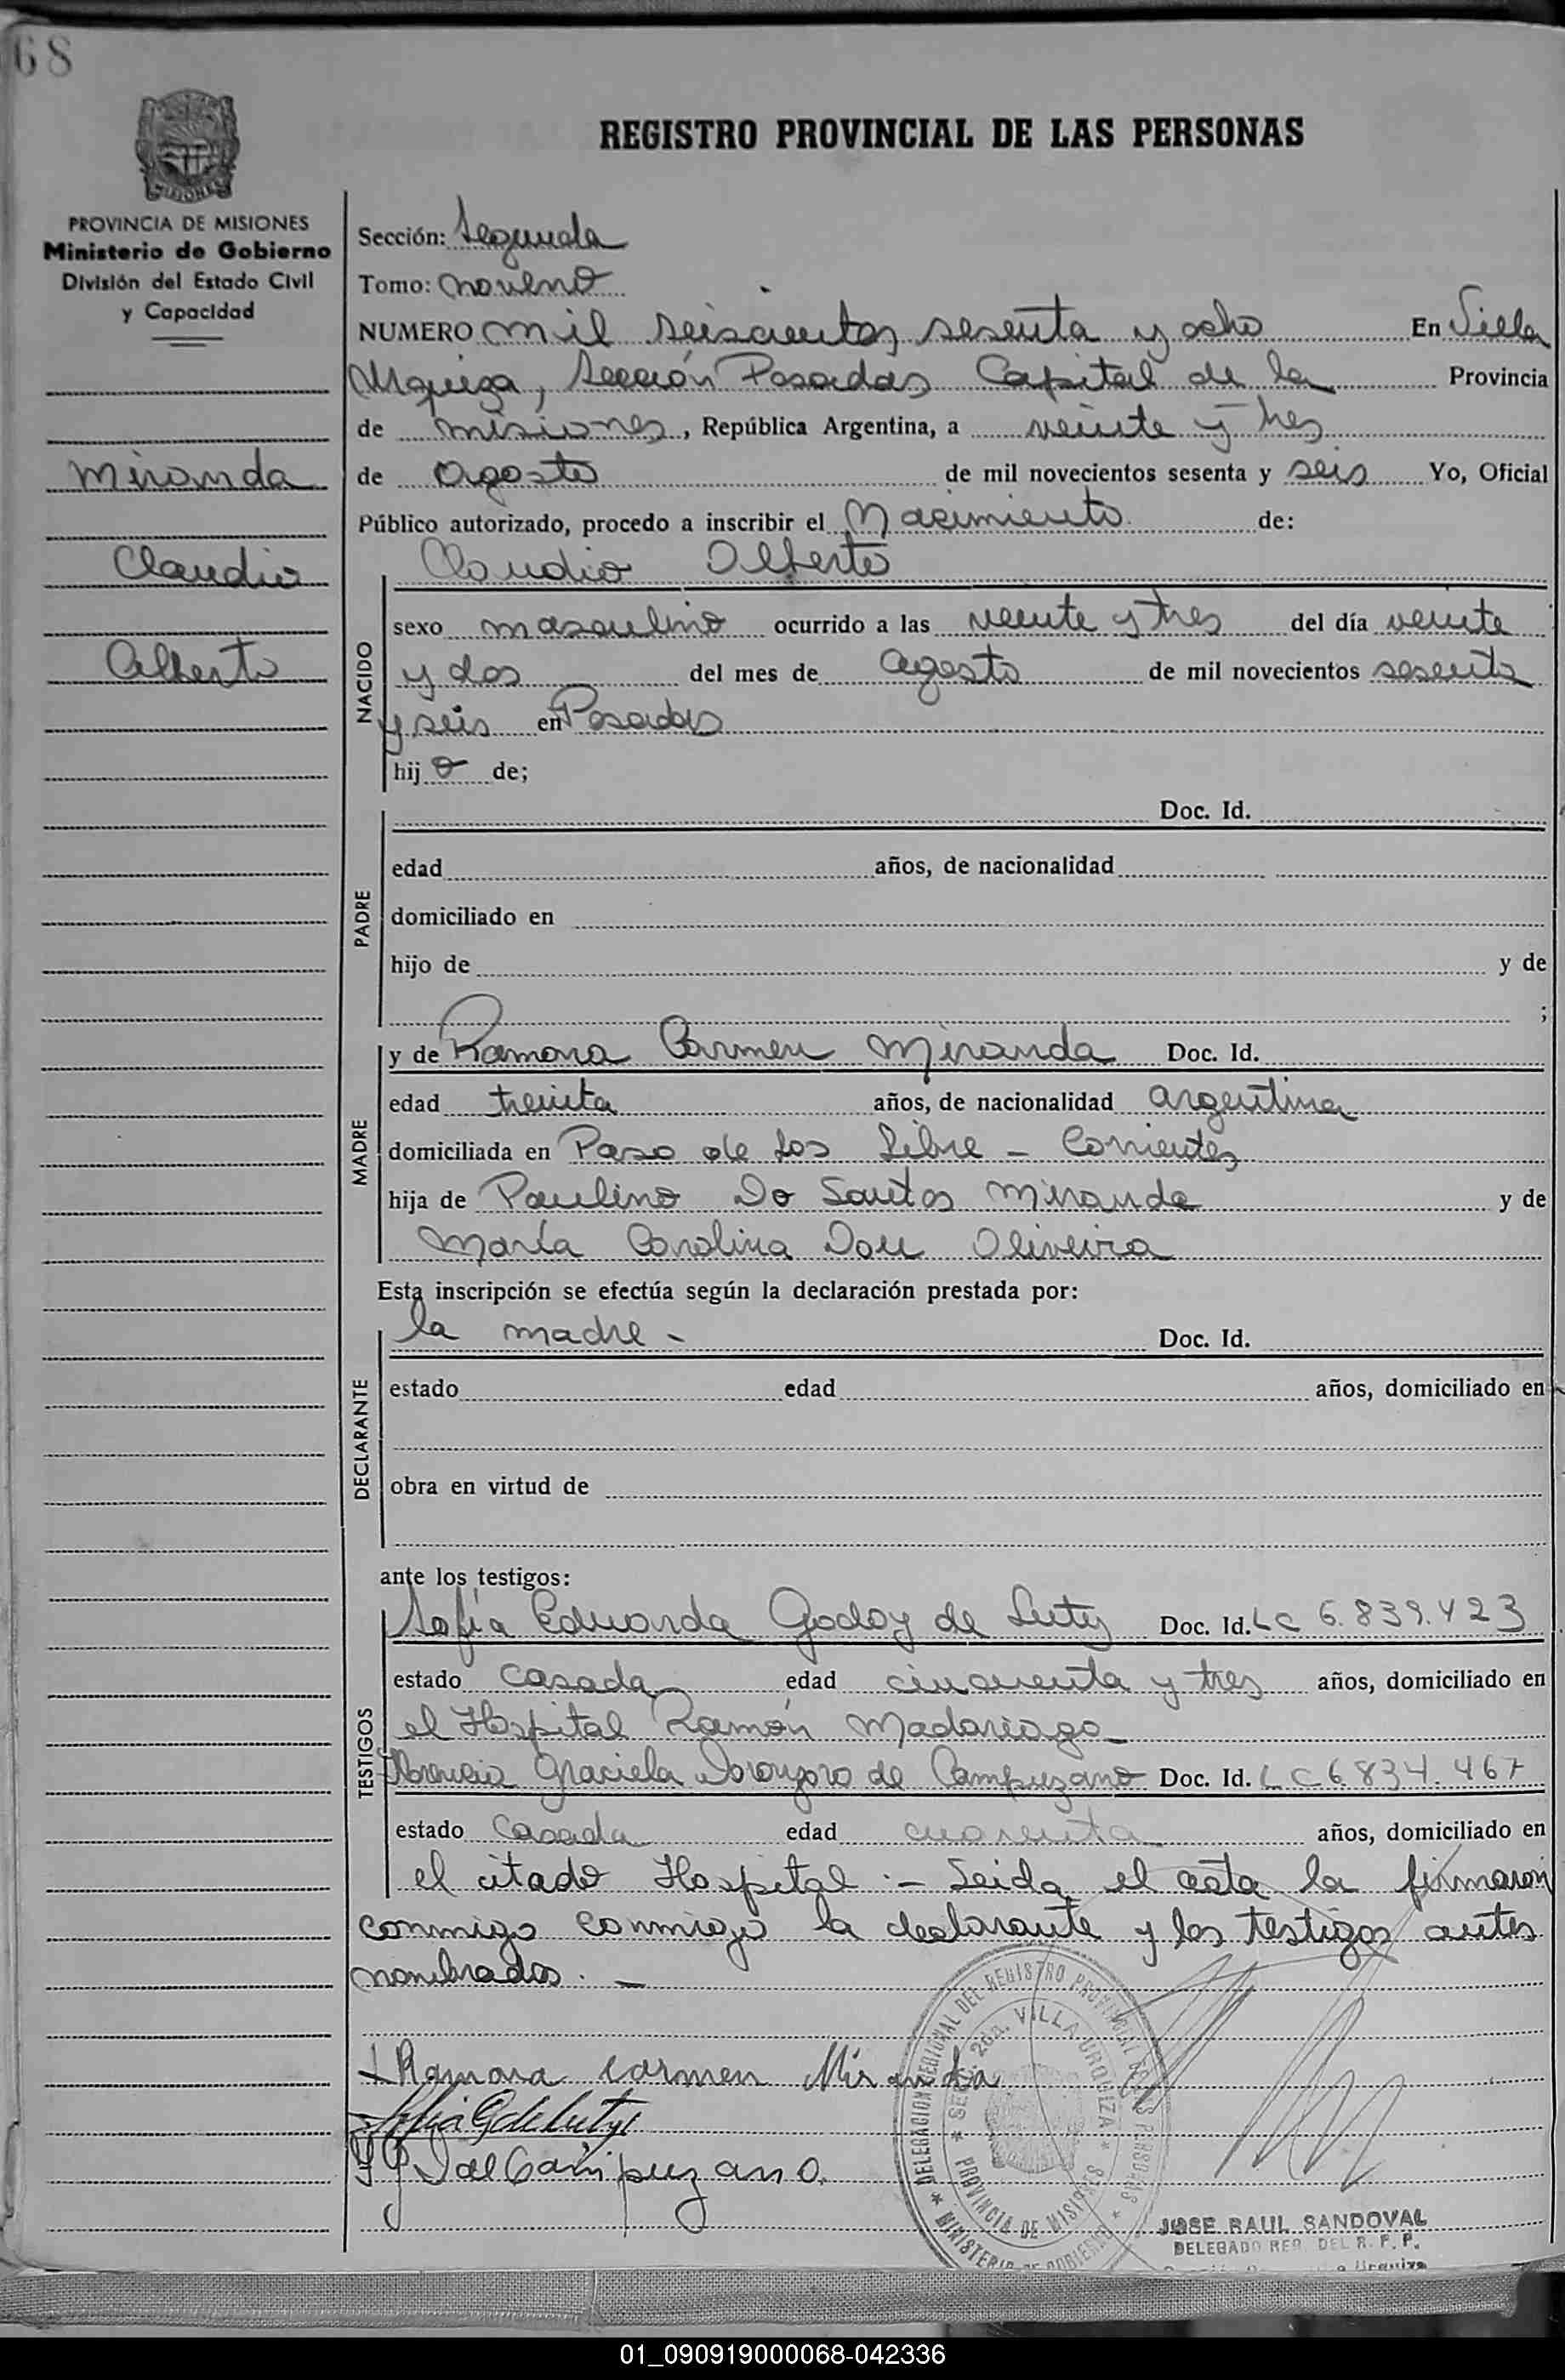 68
REGISTRO PROVINCIAL DE LAS PERSONAS
MISIONES
PROVINCIA DE MISIONES
Ministerio de Gobierno
División del Estado Civil
y Capacidad
Miranda
Claudio
Alberto
Sección: Segunda
Tomo: noveno
NUMERO mil seiscientos sesenta y ocho En Villa
Urquiza, Sección Posadas Capital de la Provincia
de misiones, República Argentina, a veinte y tres
de Agosto de mil novecientos sesenta y seis Yo, Oficial
Público autorizado, procedo a inscribir el Nacimiento de:
Claudio Alberto
NACIDO
sexo masculino ocurrido a las veinte y tres del día veinte
y dos del mes de agosto de mil novecientos sesenta
y seis en Posadas
hijo de;
PADRE
Doc. Id.
edad años, de nacionalidad
domiciliado en
hijo de y de
;
MADRE
y de Ramona Carmen Miranda Doc. Id.
edad treinta años, de nacionalidad argentina
domiciliada en Paso de Los Libre - Corrientes
hija de Paulino Do Santos Miranda y de
María Carolina Oliveira
Esta inscripción se efectúa según la declaración prestada por:
DECLARANTE
la madre - Doc. Id.
estado edad años, domiciliado en
obra en virtud de
ante los testigos:
TESTIGOS
Sofía Eduarda Godoy de Doc. Id. LC 6.839.423
estado casada edad cincuenta y tres años, domiciliado en
el Hospital Ramón Madariaga
Graciela de Campuzano Doc. Id. LC 6.834.467
estado Casada edad cuarenta años, domiciliado en
el citado Hospital.- Leida el acta la firmaron
conmigo conmigo la declarante y los testigos antes
nombrados. -
Ramona Carmen Miranda
de Campuzano
DELEGACION REGIONAL DEL REGISTRO PROVINCIAL DE LAS PERSONAS
SEC. 2da. VILLA URQUIZA
PROVINCIA DE MISIONES
MINISTERIO DE GOBIERNO
JOSE RAUL SANDOVAL
DELEGADO REG. DEL R. P. P.
Urquiza
01_090919000068-042336